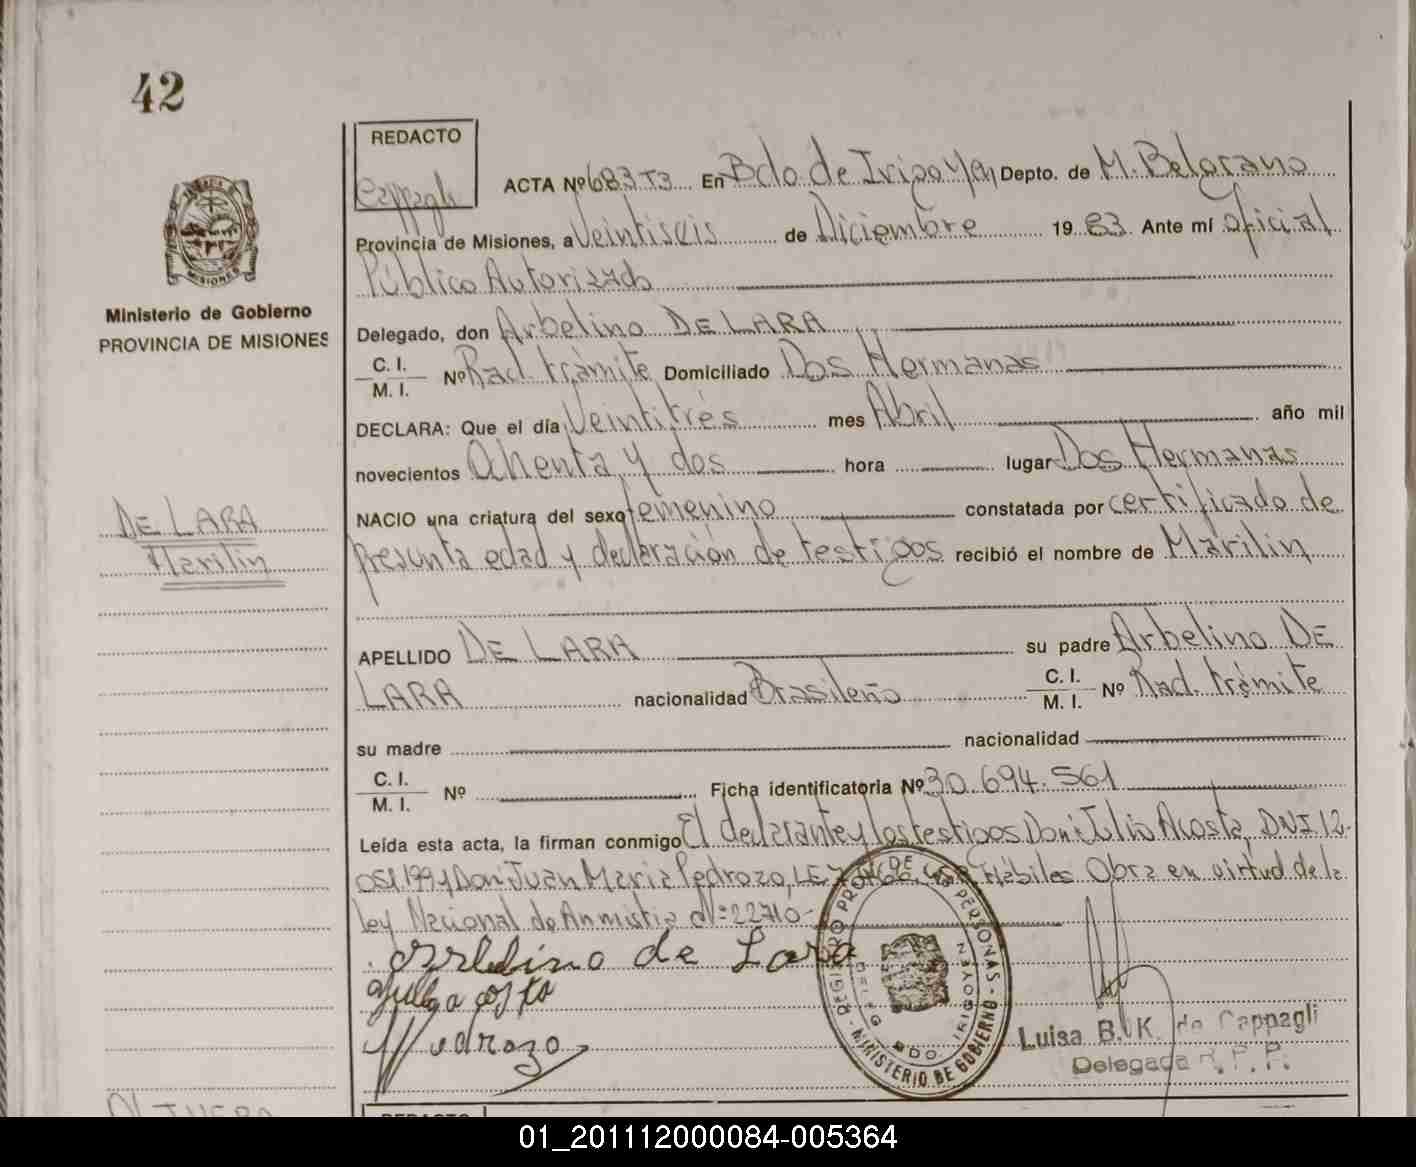 42
REDACTO
Cappagli
ACTA Nº 683 T3 En Bdo de Irigoyen Depto. de M. Belgrano
Provincia de Misiones, a Veintiseis de Diciembre 19 83 Ante mí Oficial
Público Autorizado
Delegado, don Arbelino DE LARA
C. I.
M. I. Nº Rad. trámite Domiciliado Dos Hermanas
DECLARA: Que el día Veintitrés mes Abril año mil
novecientos Ohenta y dos hora lugar Dos Hermanas
NACIO una criatura del sexo femenino constatada por certificado de
presunta edad y declaración de testigos recibió el nombre de Marilin
APELLIDO DE LARA su padre Arbelino DE
LARA nacionalidad Brasileño C. I.
M. I. Nº Rad. trámite
su madre nacionalidad
C. I.
M. I. Nº Ficha identificatoria Nº 30.694.561
Leída esta acta, la firman conmigo El declarante y los testigos Don: Julio Acosta, DNI 12.
051.199 y Don Juan Maria Pedrozo, LE Hábiles Obra en virtud de la
ley Nacional de Anmistia Nº 22710-
Arbelino de Lara
Pedrozo
Ministerio de Gobierno
PROVINCIA DE MISIONES
DE LARA
Marilin
REGISTRO PROV. DE LAS PERSONAS - MINISTERIO DE GOBIERNO -
DELEG. BDO. IRIGOYEN
Luisa B. K. de Cappagli
Delegada R. P. P.
REDACTO
01_201112000084-005364